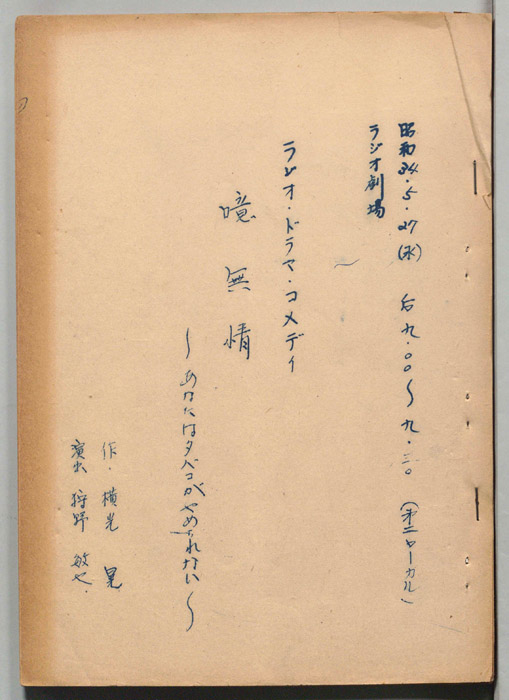 昭和34.5.27(水) 后九.〇〇〜九.三〇 (第二ローカル)
ラジオ劇場
ラジオ・ドラマ・コメディ
噫無情
〜あなたはタバコがやめられない〜
作・横光 晃
演出 狩野 敏也.